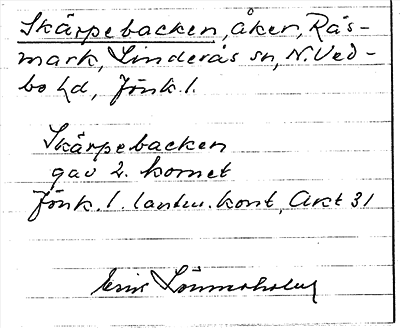 Skärpebacken, åker, Räs-
mark, Linderås sn, N. Ved-
bo hd, Jönk. l.
Skärpebacken
gav 2. kornet
Jönk. l. lantm. kont, Akt 31
Eric